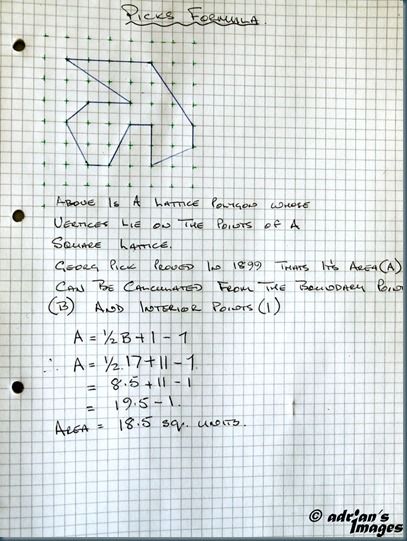 PICKS FORMULA.
ABOVE IS A LATTICE POLYGON WHOSE
VERTICES LIE ON THE POINTS OF A
SQUARE LATTICE.
GEORG PICK PROVED IN 1899 THATS IT'S AREA (A)
CAN BE CALCULATED FROM THE BOUNDARY POIN
(B) AND INTERIOR POINTS (I)
A = ½B + I - 1
∴ A = ½.17 + 11 - 1
= 8.5 + 11 - 1
= 19.5 - 1.
AREA = 18.5 SQ. UNITS.
© adrian's
Images